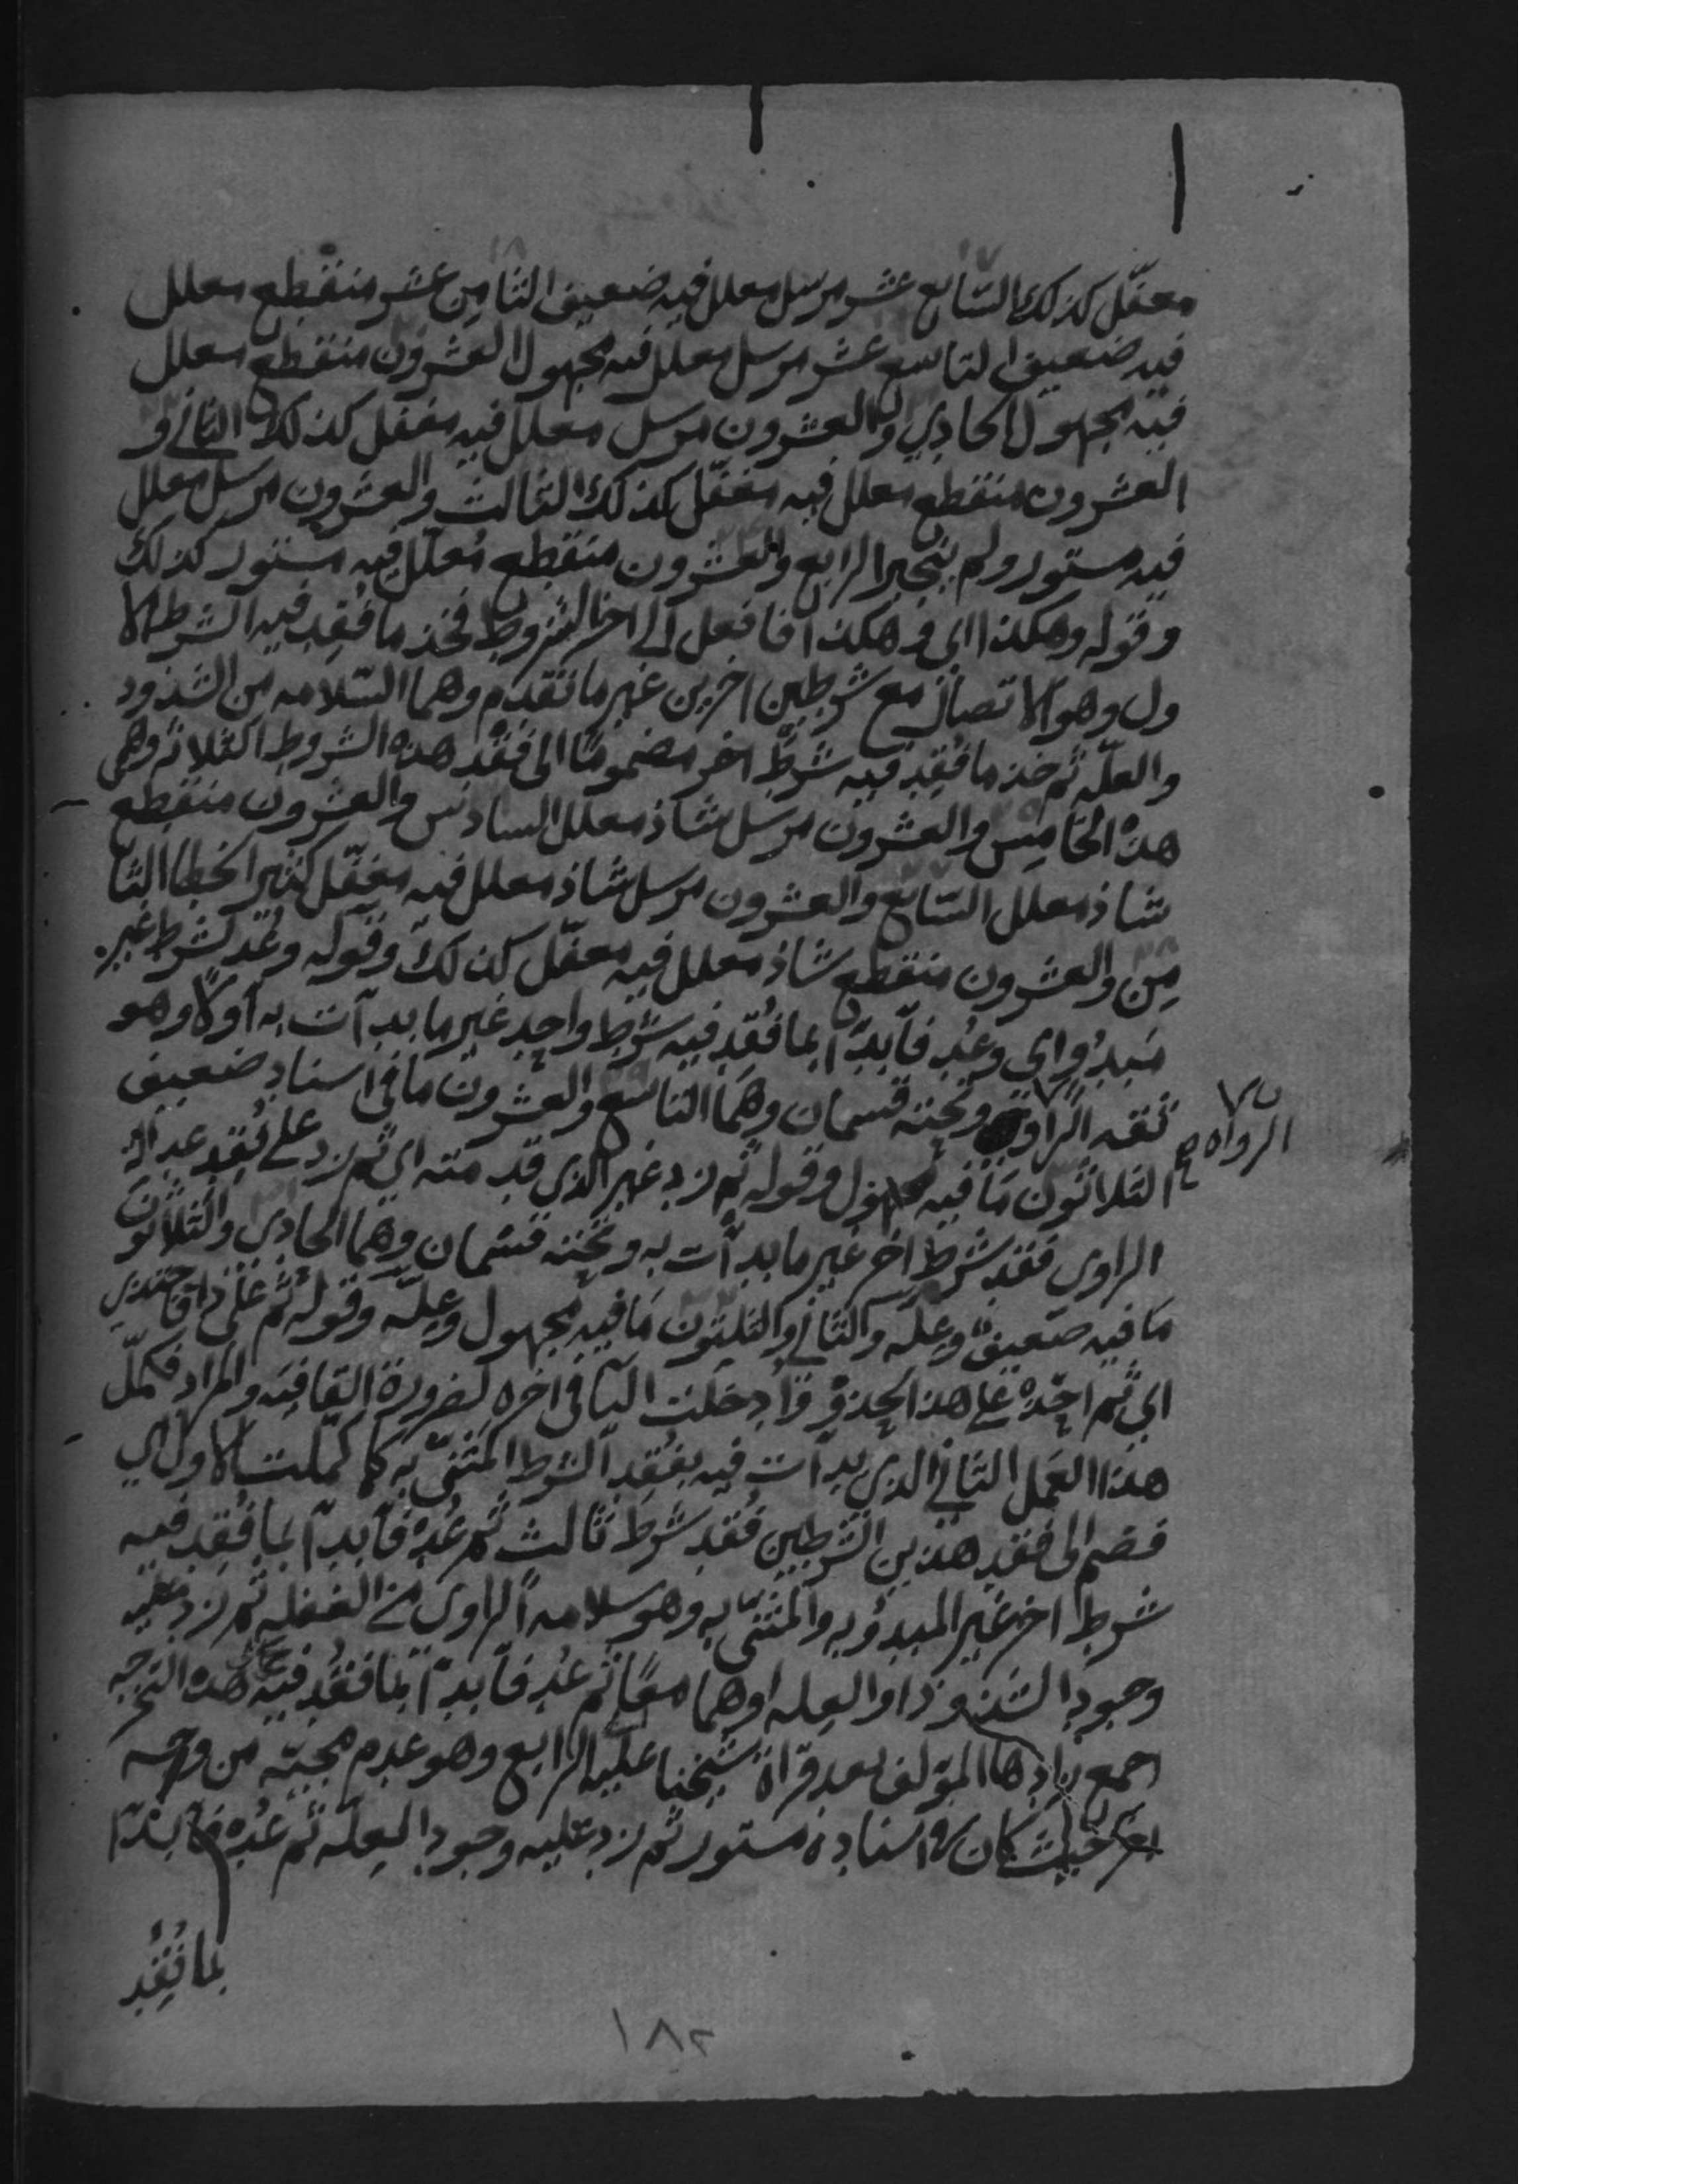 مغفّل كذلك السّابع عشر مرسل معلل فيه ضعيف الثامن عشر منقطع معلل
فيه ضعيف التاسع عشر مرسل معلل فيه مجهول العشرون منقطع معلل
فيه مجهول الحادي والعشرون مرسل معلل فيه مغفل كذلك الثاني و
العشرون منقطع معلل فيه مغفّل كذلك الثالث والعشرون مرسل معلل
فيه مستور ولم ينجبر الرابع والعشرون منقطع مُعلّل فيه مستور كذلك
وقوله وهكذا اي وهكذا فافعل الى اخر الشروط فخذ ما فُقِد فيه الشرط الا
ول وهو الاتصال مع شرطين اخرين غير ما تقدم وهما السّلامه من الشذوذ
والعلّه ثم خذ ما فُقِد فيه شرط اخر مضمومًا الى فَقْد هذه الشروط الثلاثه وهي
هذه الخامِس والعشرون مرسَل شاذ معلل السادس والعشرون منقطع
شاذ معلل السّابع والعشرون مرسل شاذ معلل فيه مغفّل كثير الخطا الثا
مِن والعشرون منقطع شاذ معلل فيه مغفّل كذلك وقوله وعُد لشرط غير
مَبدُو اي وعُد فابدأ بما فُقِد فيه شرط واحِد غير ما بدات به اولًا وهو
ثقه الراوي وتحته قسمان وهما التاسع والعشرون ما في اسنادِه ضعيف
الرواه
الثلاثون مَا فيه مجهول وقوله ثم زِد غير الذي قدمته اي ثم زد على فَقِد عداله
الراوي فقد شرط اخر غير ما بدأت به وتحته قسمان وهما الحادي والثلاثون
مَا فيه ضعيف وعله والثاني والثلثون مَا فيه مجهول وعِلّه وقوله ثم على ذا فاحتذي
اي ثم احذه على هذا الحذو وادخلت اليا في اخره لضرورة القافيه والمراد فكمّل
هذا العمل الثاني الذي بدات فيه بفقد الشرط المثنّى به كما كمّلت الاول اي
فضم الى فقد هذين الشرطين فقد شرط ثالث ثم عُدْ فابدأ بما فُقِد فيه
شرط اخر غير المبدُو به والمثنى به وهو سلامه الراوي من الغفله ثم زد عليه
وجود الشذوذ او العِله او هما معًا ثم عُد فابدأ بما فقد فيه هذه التخرجه
اجمع زادها المؤلف بعد قراة شيخنا عليه الرابع وهو عدم مجيئه من وجه
حيث كان في اسناده مستور ثم زد عليه وجود العِلّه ثم عُد فابدأ
بما فُقِد
١٨٢